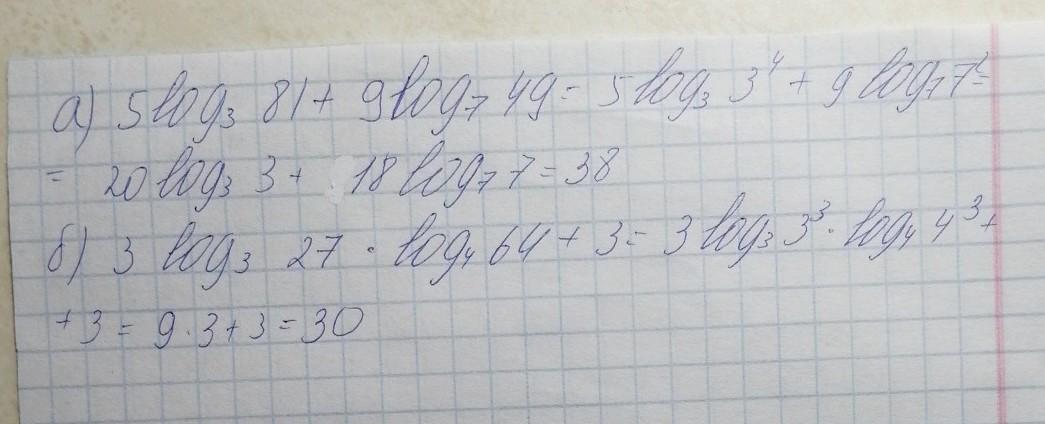 а) 5log₃ 81 + 9log₇ 49 = 5log₃ 3⁴ + 9log₇7² =
= 20log₃ 3 + 18log₇ 7 = 38
б) 3 log₃ 27 · log₄ 64 + 3 = 3log₃ 3³ · log₄ 4³ +
+ 3 = 9 · 3 + 3 = 30